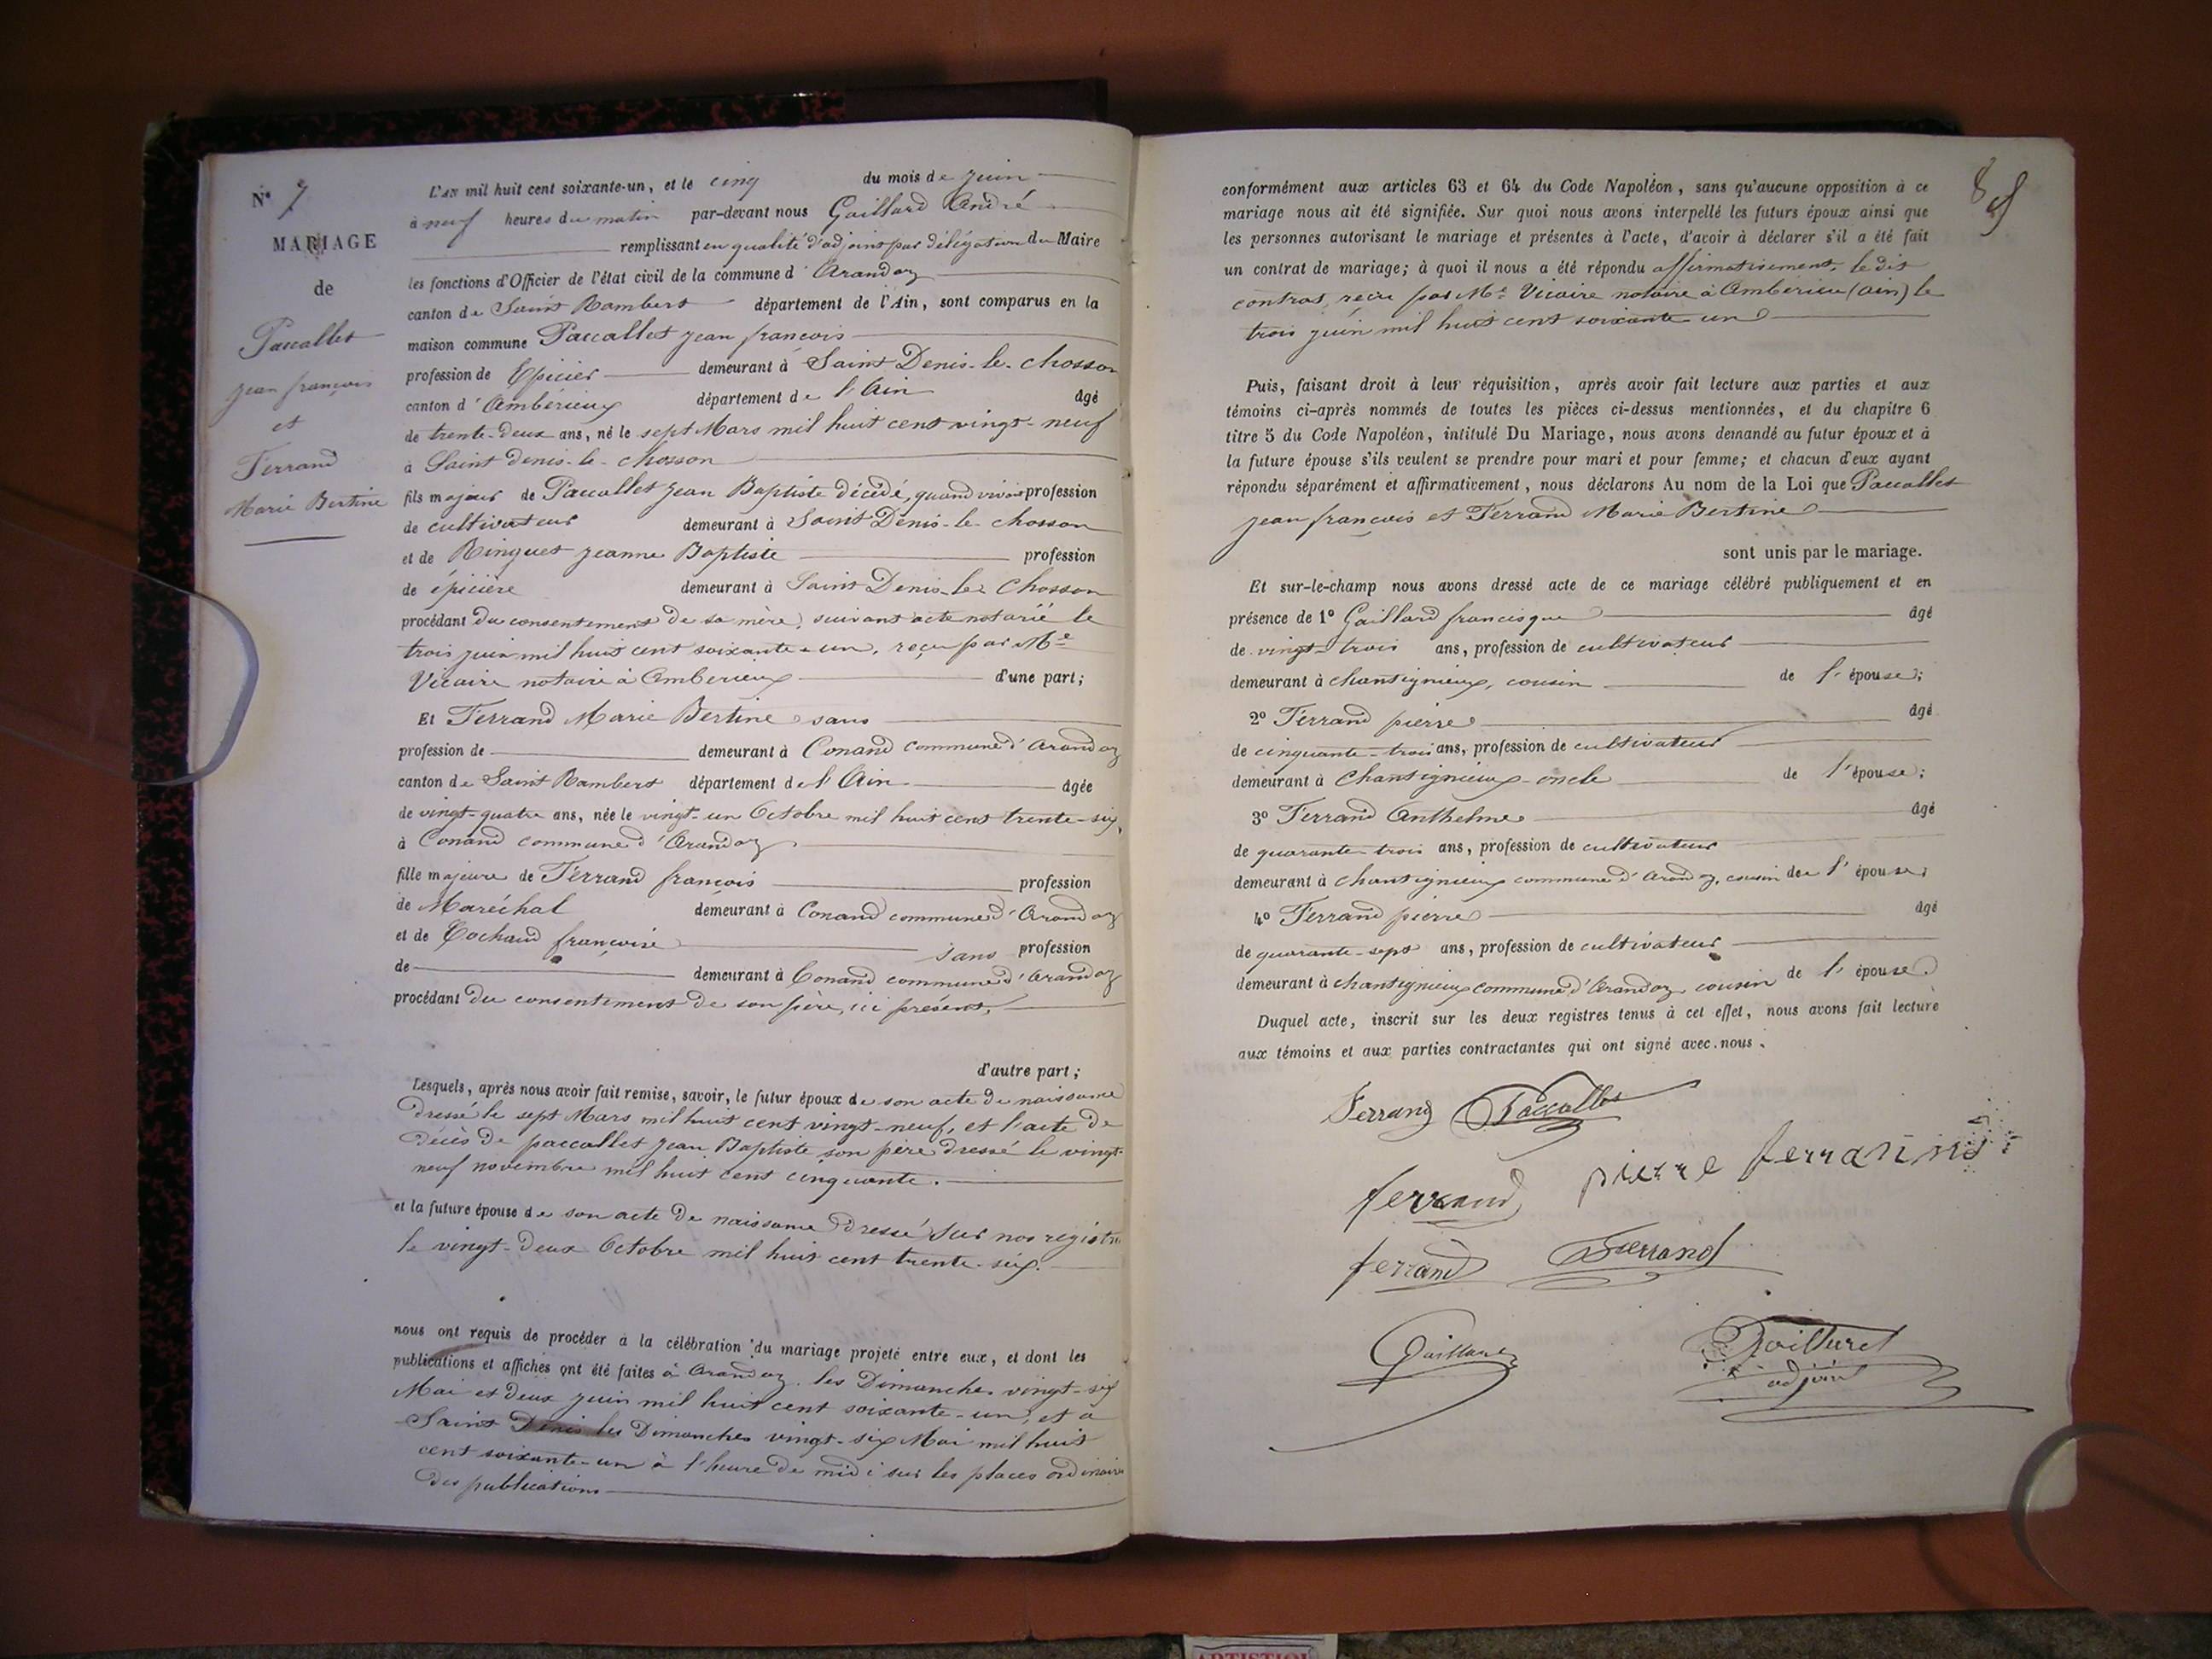 N° 7
MARIAGE
de
Paccallet
jean françois
et
Ferrand
Marie Bertine
L'AN mil huit cent soixante-un, et le cinq du mois de juin
à neuf heures du matin par-devant nous Gaillard André
remplissant en qualité d'adjoint par délégation du Maire
les fonctions d'Officier de l'état civil de la commune d'Arandaz
canton de Saint Rambert département de l'Ain, sont comparus en la
maison commune Paccallet jean françois
profession de Epicier demeurant à Saint Denis-le-chosson
canton d'Ambérieux département de l'Ain âgé
de trente-deux ans, né le sept Mars mil huit cent vingt-neuf
à Saint denis-le-chosson
fils majeur de Paccallet jean Baptiste décédé, quand vivait profession
de cultivateur demeurant à Saint Denis-le-chosson
et de Ringuet jeanne Baptiste profession
de épicière demeurant à Saint Denis-le-Chosson
procédant du consentement de sa mère, suivant acte notarié le
trois juin mil huit cent soixante-un, reçu par Me
Vicaire notaire à Amberieux d'une part;
Et Ferrand Marie Bertine sans
profession de demeurant à Conand commune d'Arandaz
canton de Saint Rambert département de l'Ain âgée
de vingt-quatre ans, née le vingt-un Octobre mil huit cent trente-six,
à Conand commune d'Arandaz
fille majeure de Ferrand françois profession
de Maréchal demeurant à Conand commune d'Arandaz
et de Cochand françoise sans profession
de demeurant à Conand commune d'Arandaz
procédant du consentement de son père, ici présent,
d'autre part;
Lesquels, après nous avoir fait remise, savoir, le futur époux de son acte de naissance
dressé le sept Mars mil huit cent vingt-neuf, et l'acte de
décès de paccallet jean Baptiste son père dressé le vingt-
neuf novembre mil huit cent cinquante.
et la future épouse de son acte de naissance dressé sur nos registre
le vingt-deux Octobre mil huit cent trente-six.
nous ont requis de procéder à la célébration du mariage projeté entre eux, et dont les
publications et affiches ont été faites à Arandaz les Dimanches vingt-six
Mai et deux juin mil huit cent soixante-un, et à
Saint Denis les Dimanches vingt-six Mai mil huit
cent soixante-un à l'heure de midi sur les places ordinaires
des publications
conformément aux articles 63 et 64 du Code Napoléon, sans qu'aucune opposition à ce
mariage nous ait été signifiée. Sur quoi nous avons interpellé les futurs époux ainsi que
les personnes autorisant le mariage et présentes à l'acte, d'avoir à déclarer s'il a été fait
un contrat de mariage; à quoi il nous a été répondu affirmativement, le dit
contrat, reçu par Me Vicaire notaire à Amberieu (ain) le
trois juin mil huit cent soixante un
Puis, faisant droit à leur réquisition, après avoir fait lecture aux parties et aux
témoins ci-après nommés de toutes les pièces ci-dessus mentionnées, et du chapitre 6
titre 5 du Code Napoléon, intitulé Du Mariage, nous avons demandé au futur époux et à
la future épouse s'ils veulent se prendre pour mari et pour femme; et chacun d'eux ayant
répondu séparément et affirmativement, nous déclarons Au nom de la Loi que Paccallet
jean françois et Ferrand Marie Bertine
sont unis par le mariage.
Et sur-le-champ nous avons dressé acte de ce mariage célébré publiquement et en
présence de 1° Gaillard francisque âgé
de vingt-trois ans, profession de cultivateur
demeurant à chantignieux, cousin de l'épouse;
2° Ferrand pierre âgé
de cinquante-trois ans, profession de cultivateur
demeurant à Chantignieux-oncle de l'épouse;
3° Ferrand Anthelme âgé
de quarante-trois ans, profession de cultivateur
demeurant à chantignieux commune d'Arandaz, cousin de l'épouse;
4° Ferrand pierre âgé
de quarante-sept ans, profession de cultivateur
demeurant à chantignieux commune d'Arandaz cousin de l'épouse
Duquel acte, inscrit sur les deux registres tenus à cet effet, nous avons fait lecture
aux témoins et aux parties contractantes qui ont signé avec nous.
Ferrand Paccallet
ferrand pierre ferrand
ferrand Ferrand
Gaillard Gaillard
adjoint